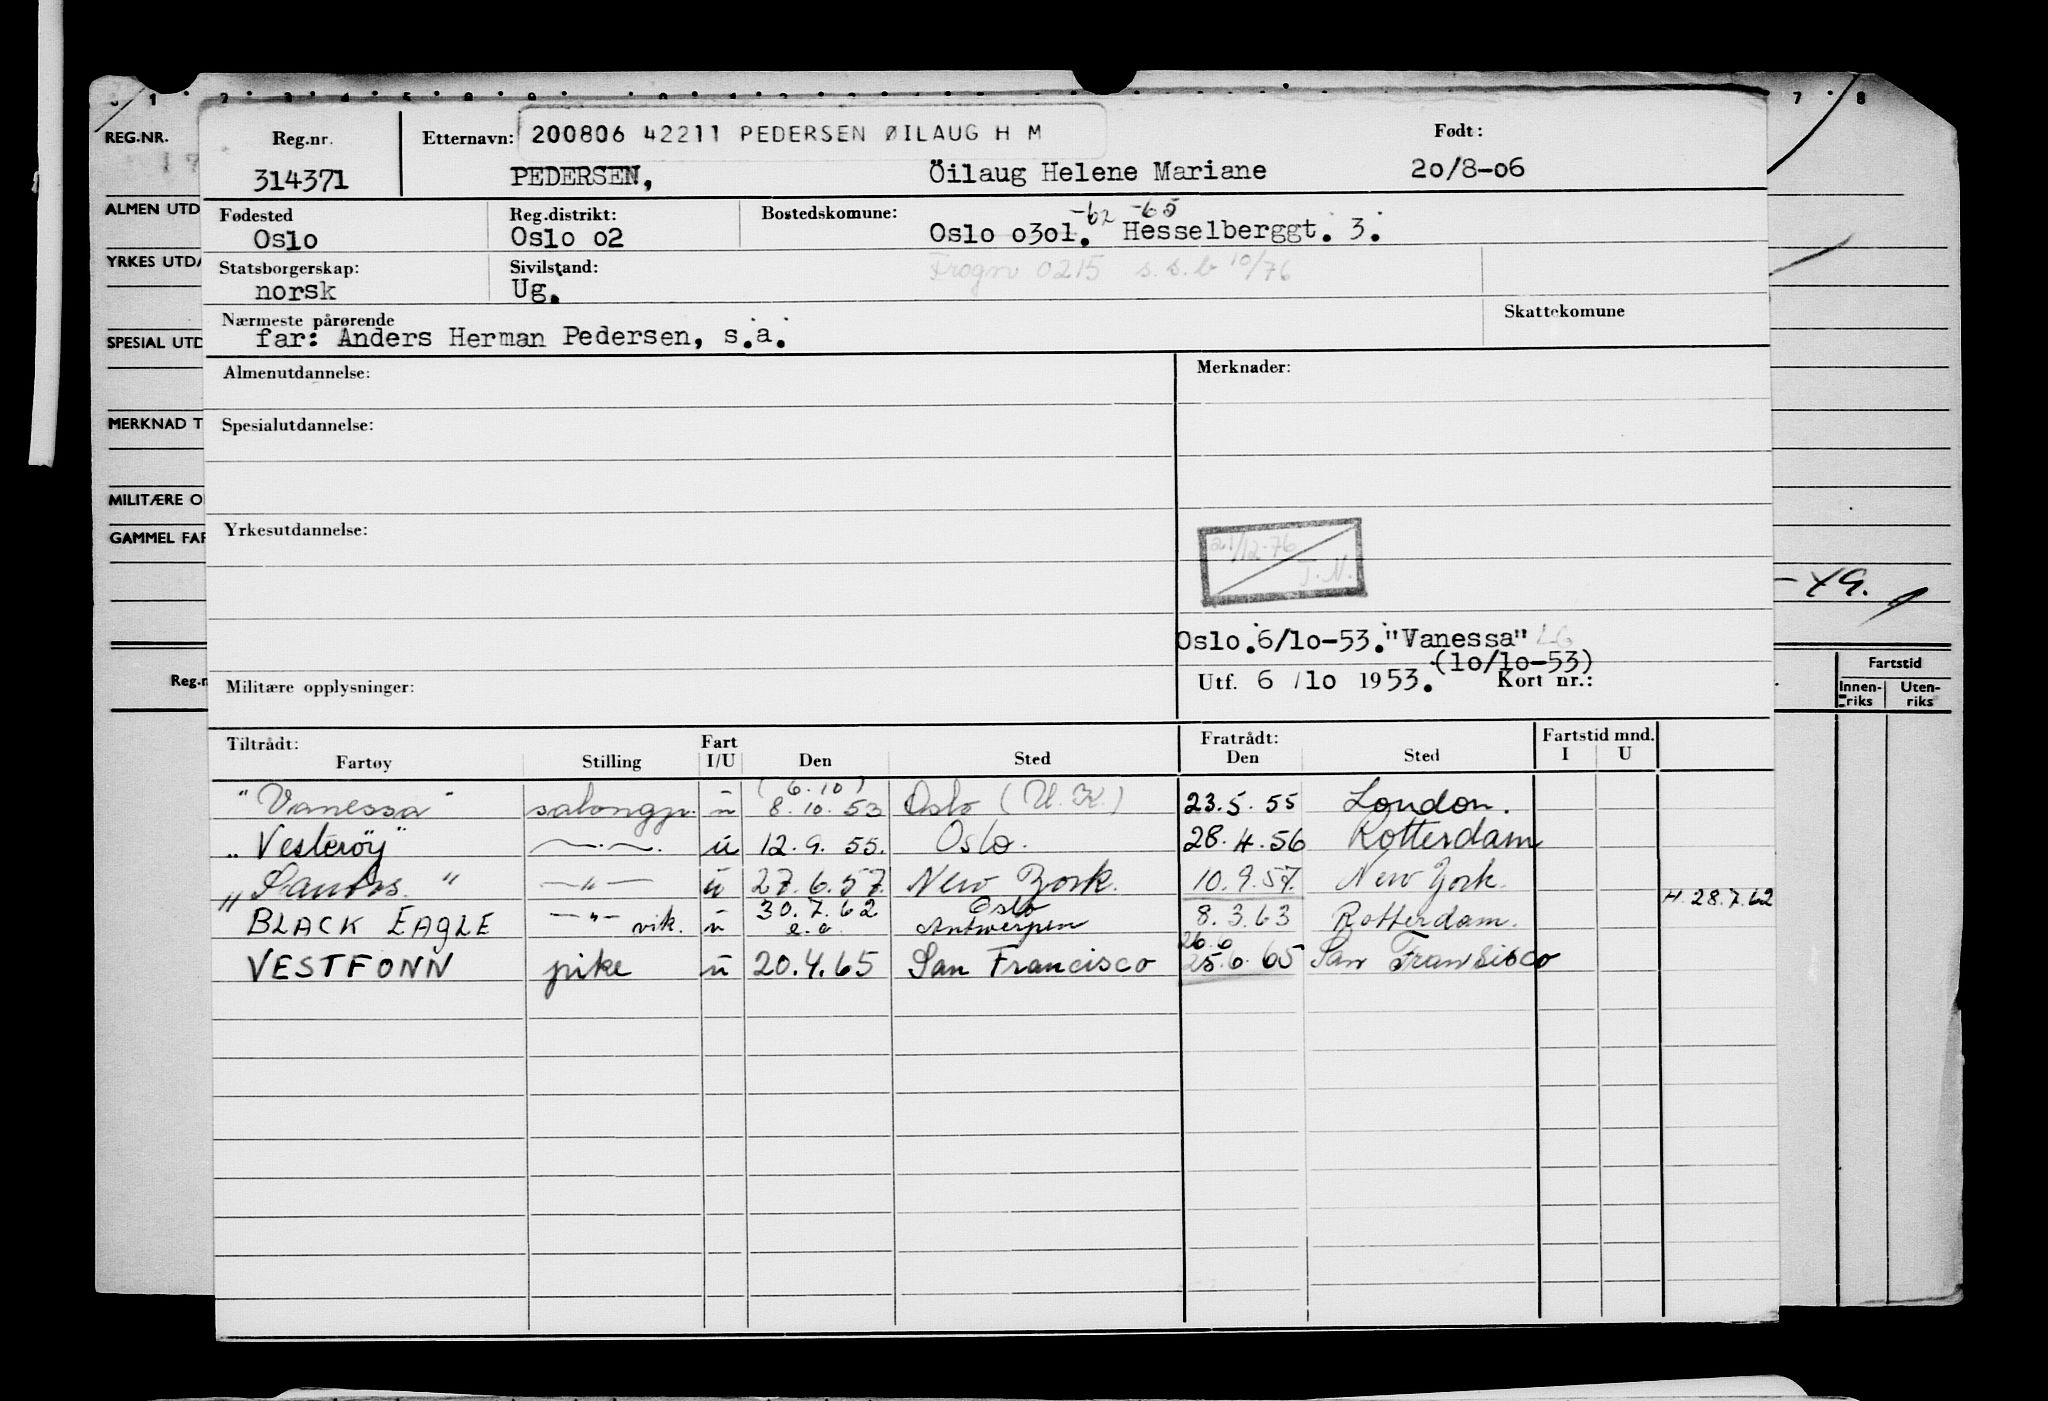 7 8
REG.NR.
ALMEN UTD
YRKES UTDA
SPESIAL UTD
MERKNAD T
MILITÆRE O
GAMMEL FAR
Reg.n
Fartstid
Innen-riks Uten-riks
Reg.nr. Etternavn: 200806 42211 PEDERSEN ØILAUG H M Født:
314371 PEDERSEN, Öilaug Helene Mariane 20/8-06
Fødested Reg.distrikt: Bostedskomune: -62 -65
Oslo Oslo o2 Oslo o3ol. Hesselberggt. 3.
Statsborgerskap: Sivilstand: Frogn 0215 s.s.b 10/76
norsk Ug.
Nærmeste pårørende Skattekomune
far: Anders Herman Pedersen, s.a.
Almenutdannelse: Merknader:
Spesialutdannelse:
Yrkesutdannelse:
21/12-76
T.N.
Oslo.6/lo-53."Vanessa"
(lo/lo-53)
Militære opplysninger: Utf. 6 /lo 1953. Kort nr.:
Tiltrådt: Fart Fratrådt: Fartstid mnd.
Fartøy Stilling I/U Den Sted Den Sted I U
(6.10)
"Vanessa" salongp. u 8.10.53 Oslo (U.K.) 23.5.55 London.
"Vesterøy" —.—. u 12.9.55. Oslo. 28.4.56 Rotterdam
"Santos." —"— u 27.6.57. New York. 10.9.57. New York.
H. 28.7.62
BLACK EAGLE —"— vik. u 30.7.62 Oslo 8.3.63 Rotterdam.
e.o. Antwerpen
26.6
VESTFONN pike u 20.4.65 San Francisco 25.6.65 San Fransisco